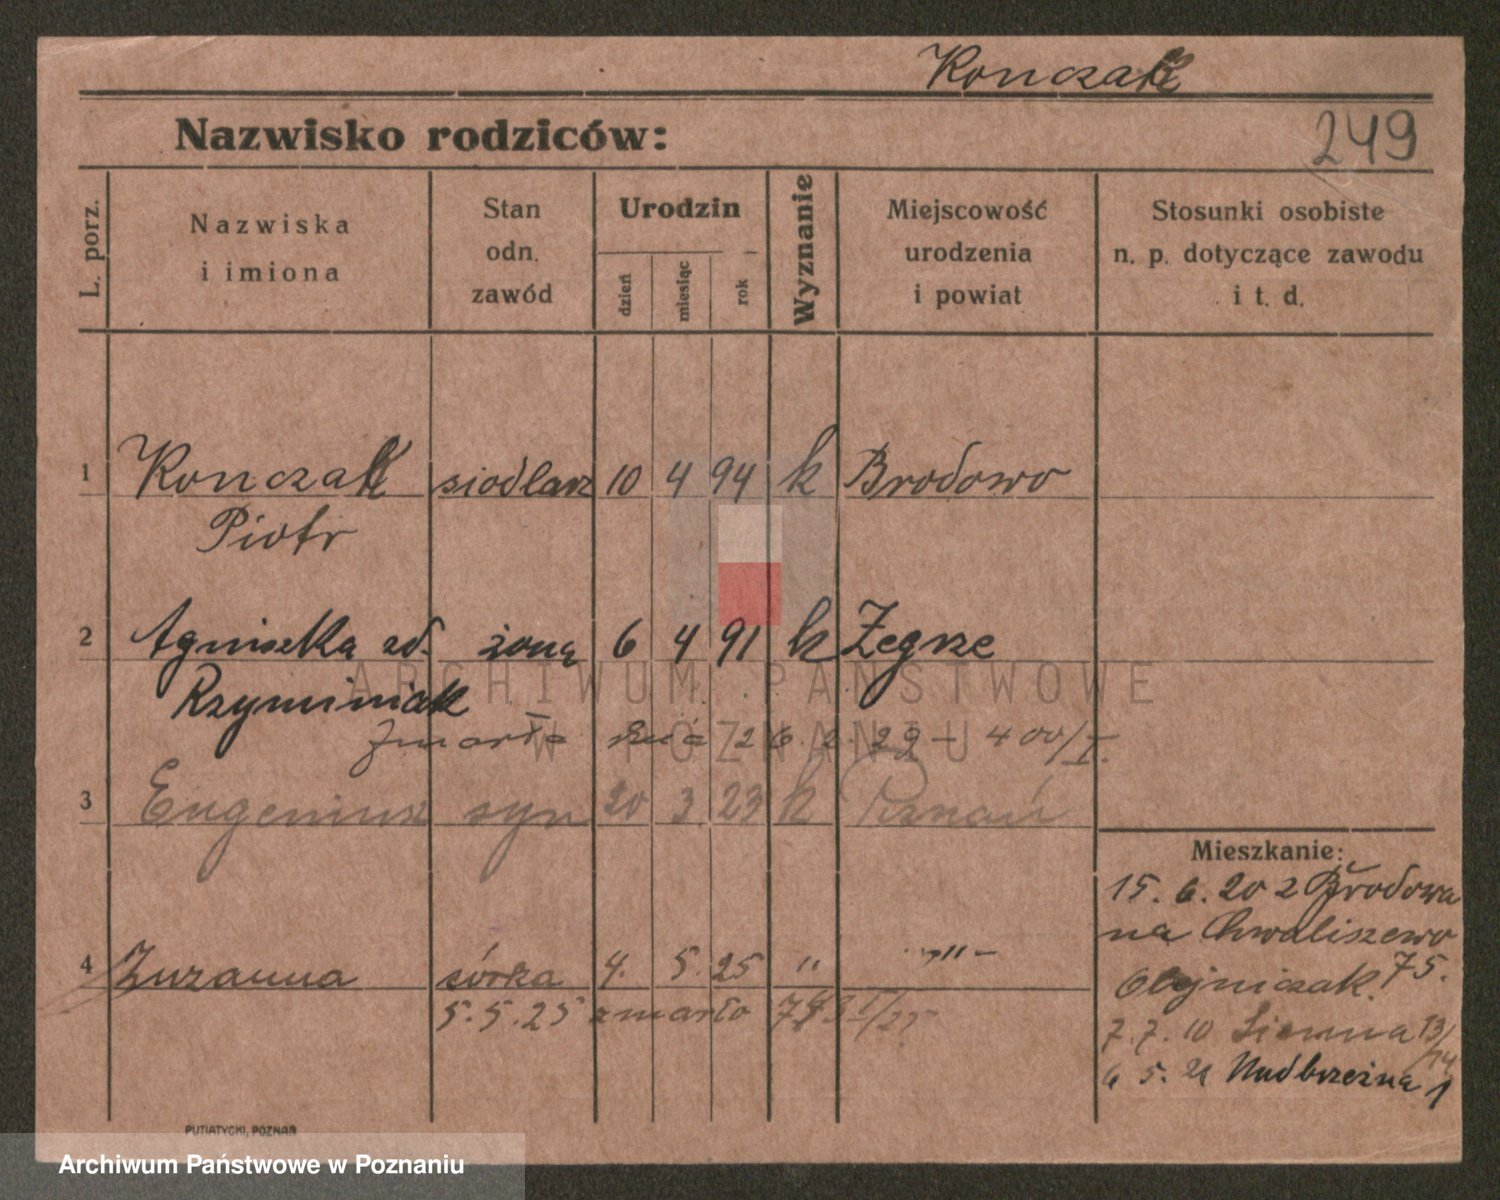 Konczak
Nazwisko rodziców:
249
L. porz.
Nazwiska
i imiona
Stan
odn.
zawód
Urodzin
dzień
miesiąc
rok
Wyznanie
Miejscowość
urodzenia
i powiat
Stosunki osobiste
n. p. dotyczące zawodu
i t. d.
1 Konczak siodlarz 10 4 94 k Brodowo
Piotr
2 Agnieszka zd. żona 6 4 91 k Zegrze
Rzyminiak
ARCHIWUM PAŃSTWOWE
W POZNANIU
zmarła dnia 26. 2. 29 – 400/I.
3 Eugeniusz syn 20 3 23 k Poznań
4 Zuzanna córka 4. 5. 25 " -"-
5.5.25 zmarło
Mieszkanie:
15. 6. 20 z Brodowa
na Chwaliszewo
75.
Olejniczak.
7. 7. 10 Sienna 13/
14
6 5. 21 Nadbrzeżna 1
PUTIATYCKI, POZNAŃ
Archiwum Państwowe w Poznaniu